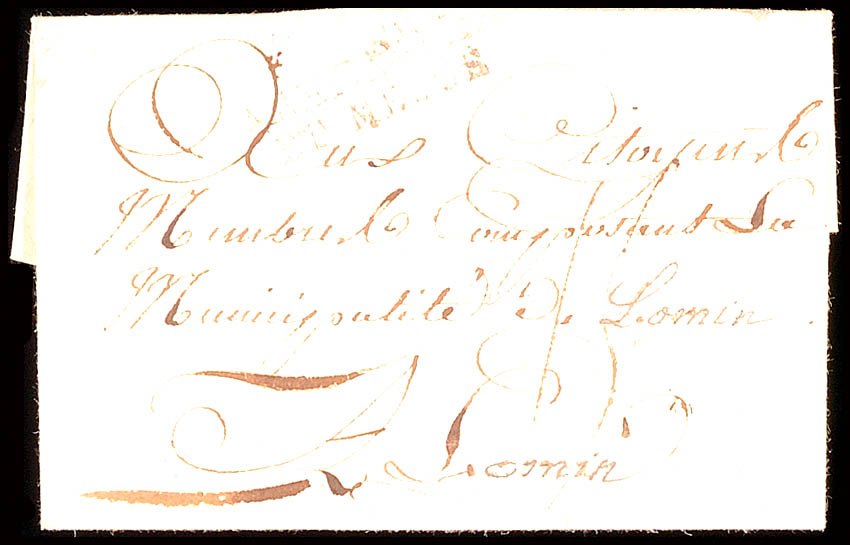 Aux Citoyens
Membres Composant La
Municipalité de Lomin
A Lomin